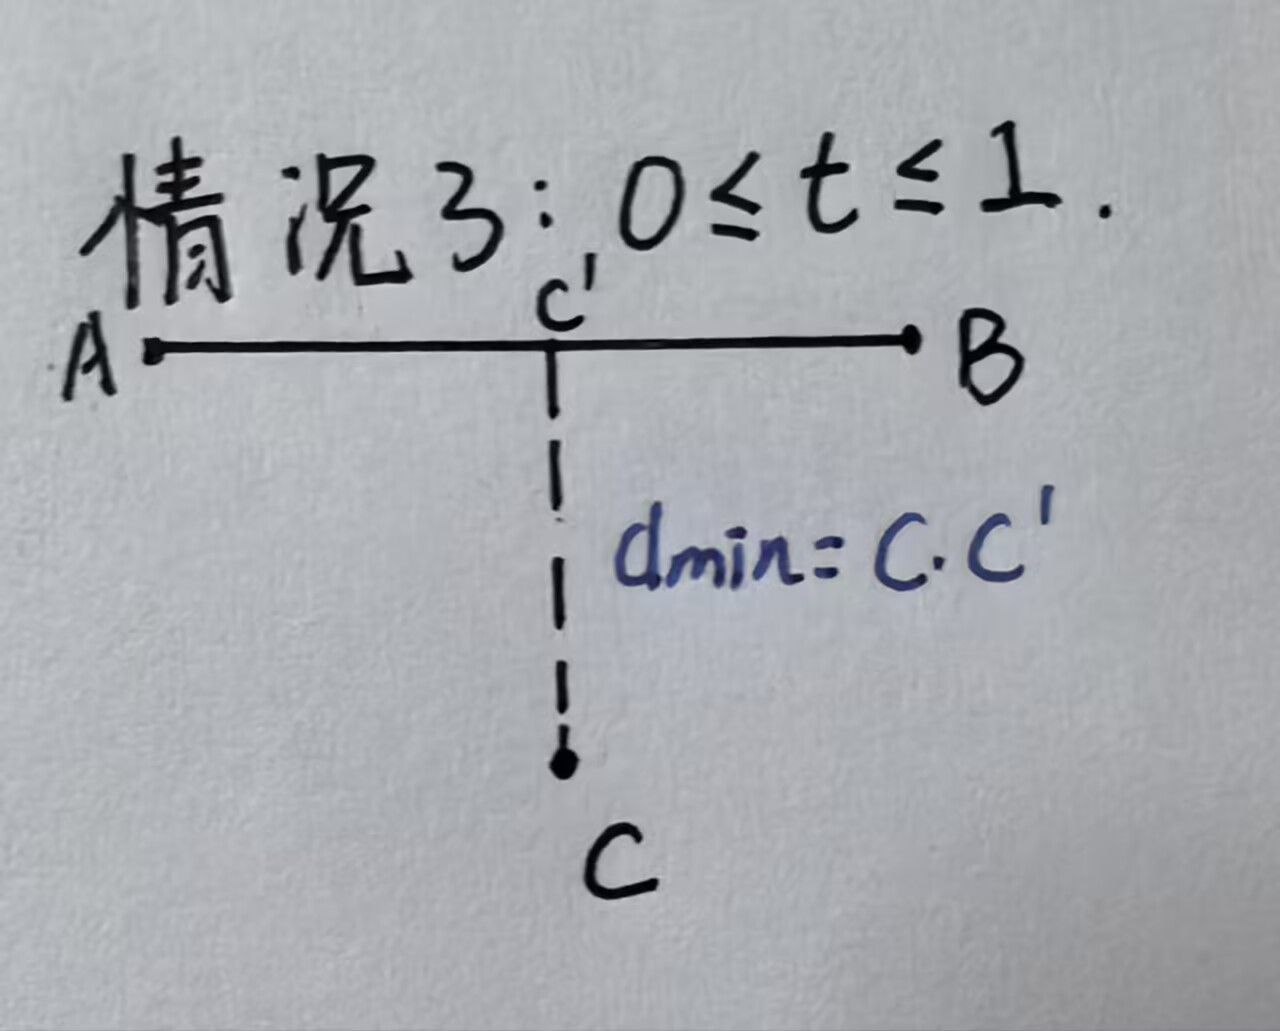 情况3: 0≤t≤1.
C'
A
B
dmin=C.C'
C